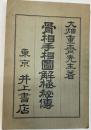 大畑重齋先生著
骨相手相圖解秘傳
東京 井上書店